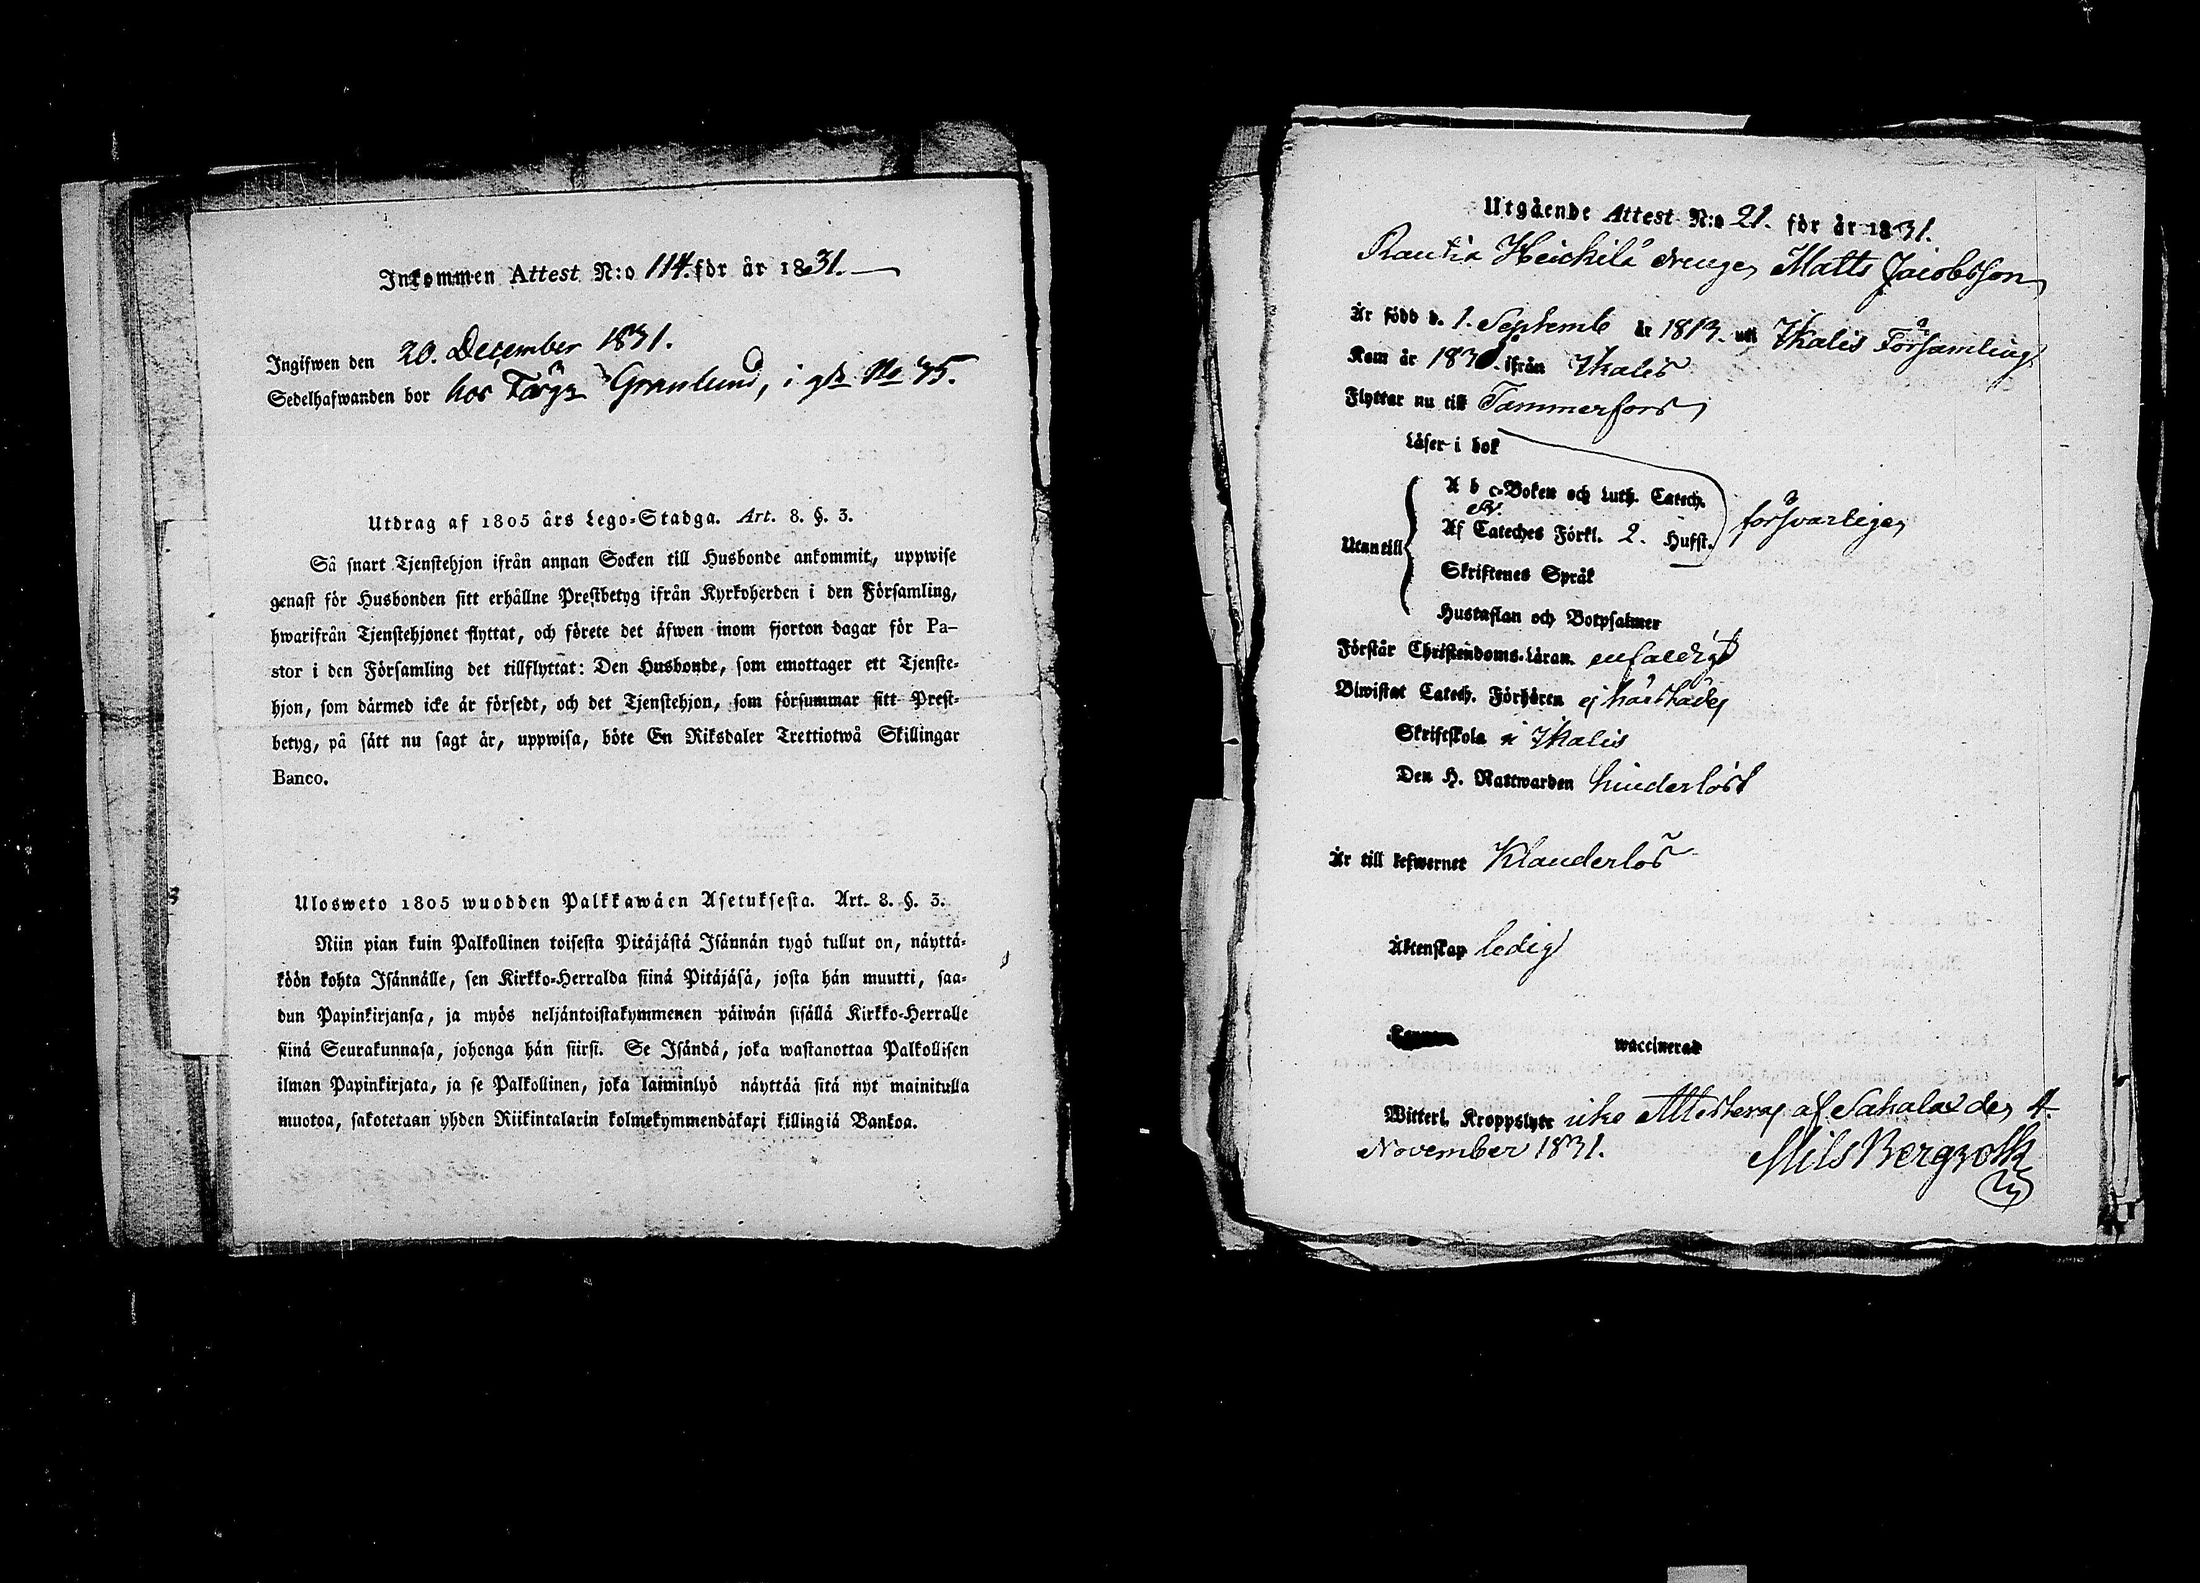 Inkommen Attest N:o 114. för år 1831.
Ingifwen den 20. December 1831.
Sedelhafwanden bor hos Färg: Granlund, i gd. No 75.
Utdrag af 1805 års Lego-Stadga. Art. 8. §. 3.
Så snart Tjenstehjon ifrån annan Socken till Husbonde ankommit, uppwise
genast för Husbonden sitt erhållne Prestbetyg ifrån Kyrkoherden i den Församling,
hwarifrån Tjenstehjonet flyttat, och förete det äfwen inom fjorton dagar för Pa-
stor i den Församling det tillflyttat: Den Husbonde, som emottager ett Tjenste-
hjon, som därmed icke är försedt, och det Tjenstehjon, som försummar sitt Prest-
betyg, på sätt nu sagt är, uppwisa, böte En Riksdaler Trettiotwå Skillingar
Banco.
Ulosweto 1805 wuodden Palkkawäen Asetuksesta. Art. 8. §. 3.
Niin pian kuin Palkollinen toisesta Pitäjästä Isännän tygö tullut on, näyttä-
köön kohta Isännälle, sen Kirkko-Herralda siinä Pitäjäsä, josta hän muutti, saa-
dun Papinkirjansa, ja myös neljäntoistakymmenen päiwän sisällä Kirkko-Herralle
siinä Seurakunnasa, johonga hän siirsi. Se Isändä, joka wastanottaa Palkollisen
ilman Papinkirjata, ja se Palkollinen, joka laiminlyö näyttää sitä nyt mainitulla
muotoa, sakotetaan yhden Riikintalarin kolmekymmendäkaxi killingiä Bankoa.
Utgående Attest N:o 21. för år 1831.
Rautia Heickilä drenge Matts Jacobsson
Är född d. 1. Septemb är 1813. uti Ikalis Församling
Kom år 1830. ifrån Ikalis
Flyttar nu till Tammerfors
Läser i bok
A b c-Boken och Luth. Catech.
Sv.
Utantill Af Cateches Förkl. 2. Hufst. försvarlige
Skriftenes Språk
Hustaflan och Botpsalmer
Förstår Christendoms-Läran. enfaldigt
Biwistat Catech. Förhören ej härstädes
Skriftskola i Ikalis
Den H. Nattwarden hinderlöst
Är till lefwernet Klanderlös
Äktenskap ledig
waccinerad
Witterl. Kroppslyte icke Attesteras af Sahalax den 4
November 1831. Nils Bergroth